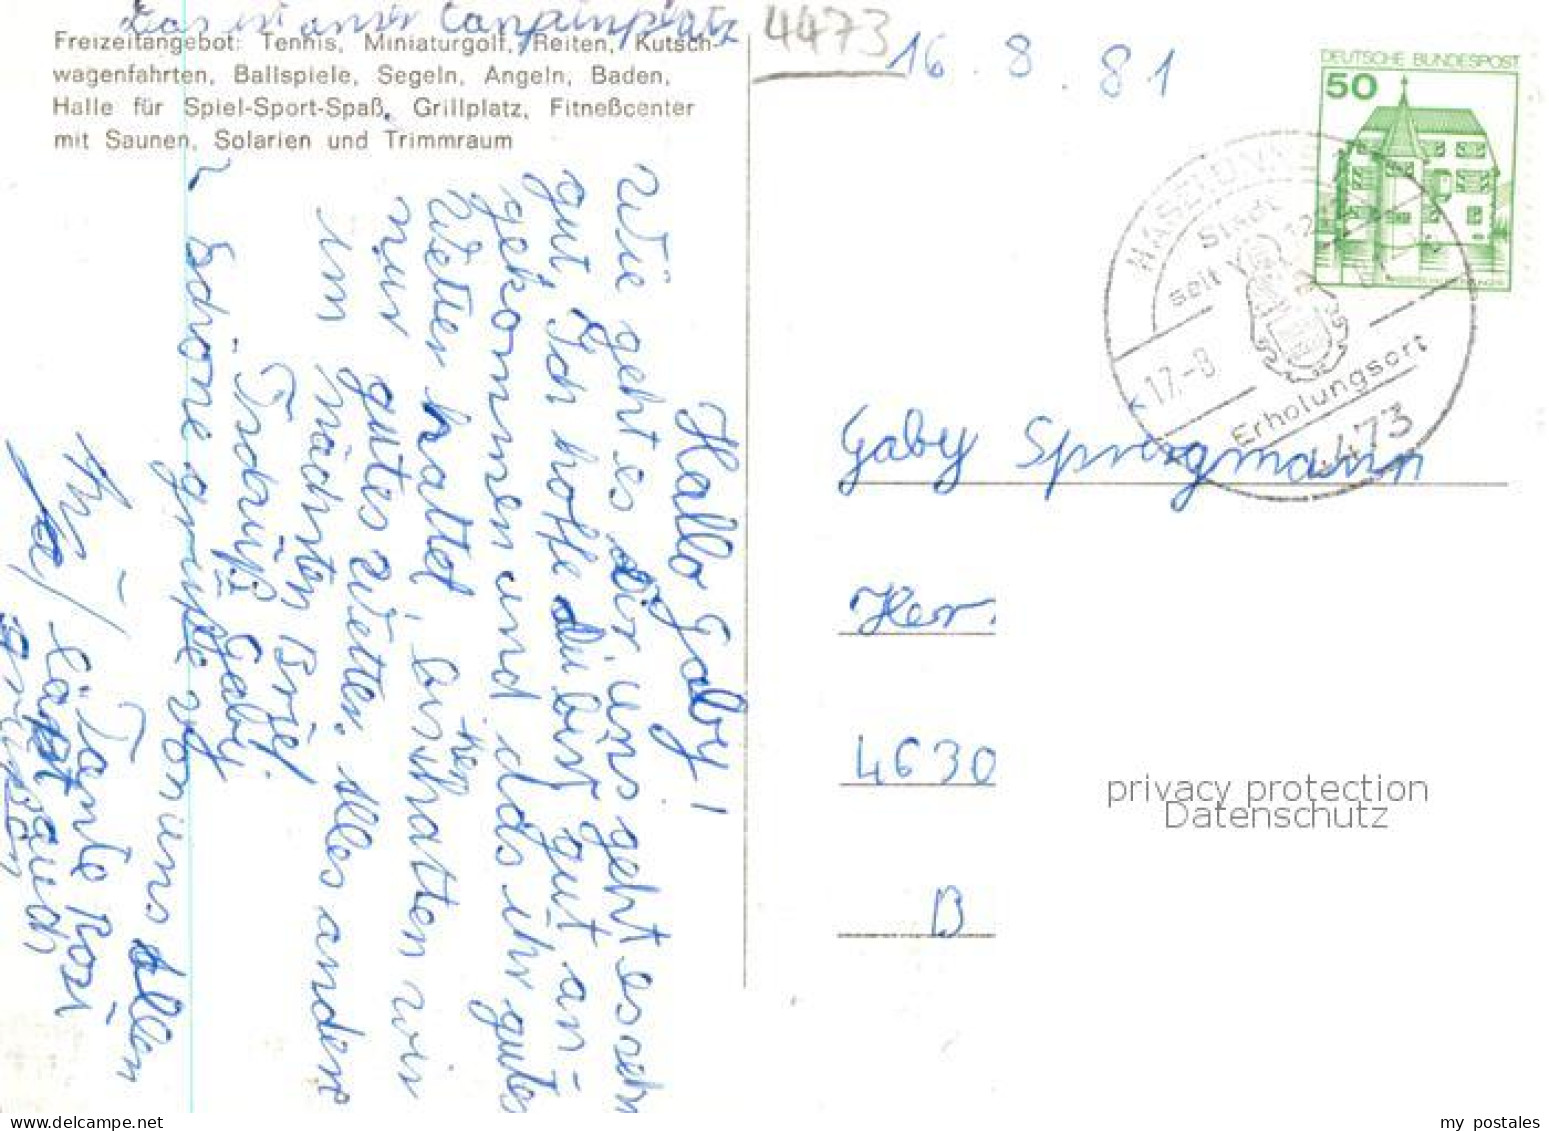 Das ist unser Campingplatz
4473
16.8.81
Freizeitangebot: Tennis, Miniaturgolf, Reiten, Kutsch-
wagenfahrten, Ballspiele, Segeln, Angeln, Baden,
Halle für Spiel-Sport-Spaß, Grillplatz, Fitneßcenter
mit Saunen, Solarien und Trimmraum
Hallo Gaby!
Wie geht es dir uns geht es sehr
gut, Ich hoffe du bist gut an-
gekommen und das ihr gutes
Wetter hattet, bisher hatten wir
nur gutes Wetter. Alles andere
im nächsten Brief
Tschüß Gaby.
Schöne grüße von uns Allen
Tante Rosi
läßt auch
grüßen
DEUTSCHE BUNDESPOST
50
HASELÜNNE
Stadt
seit
17.-8
Erholungsort
4473
Gaby
Her
4630
B
privacy protection
Datenschutz
www.delcampe.net
my_postales